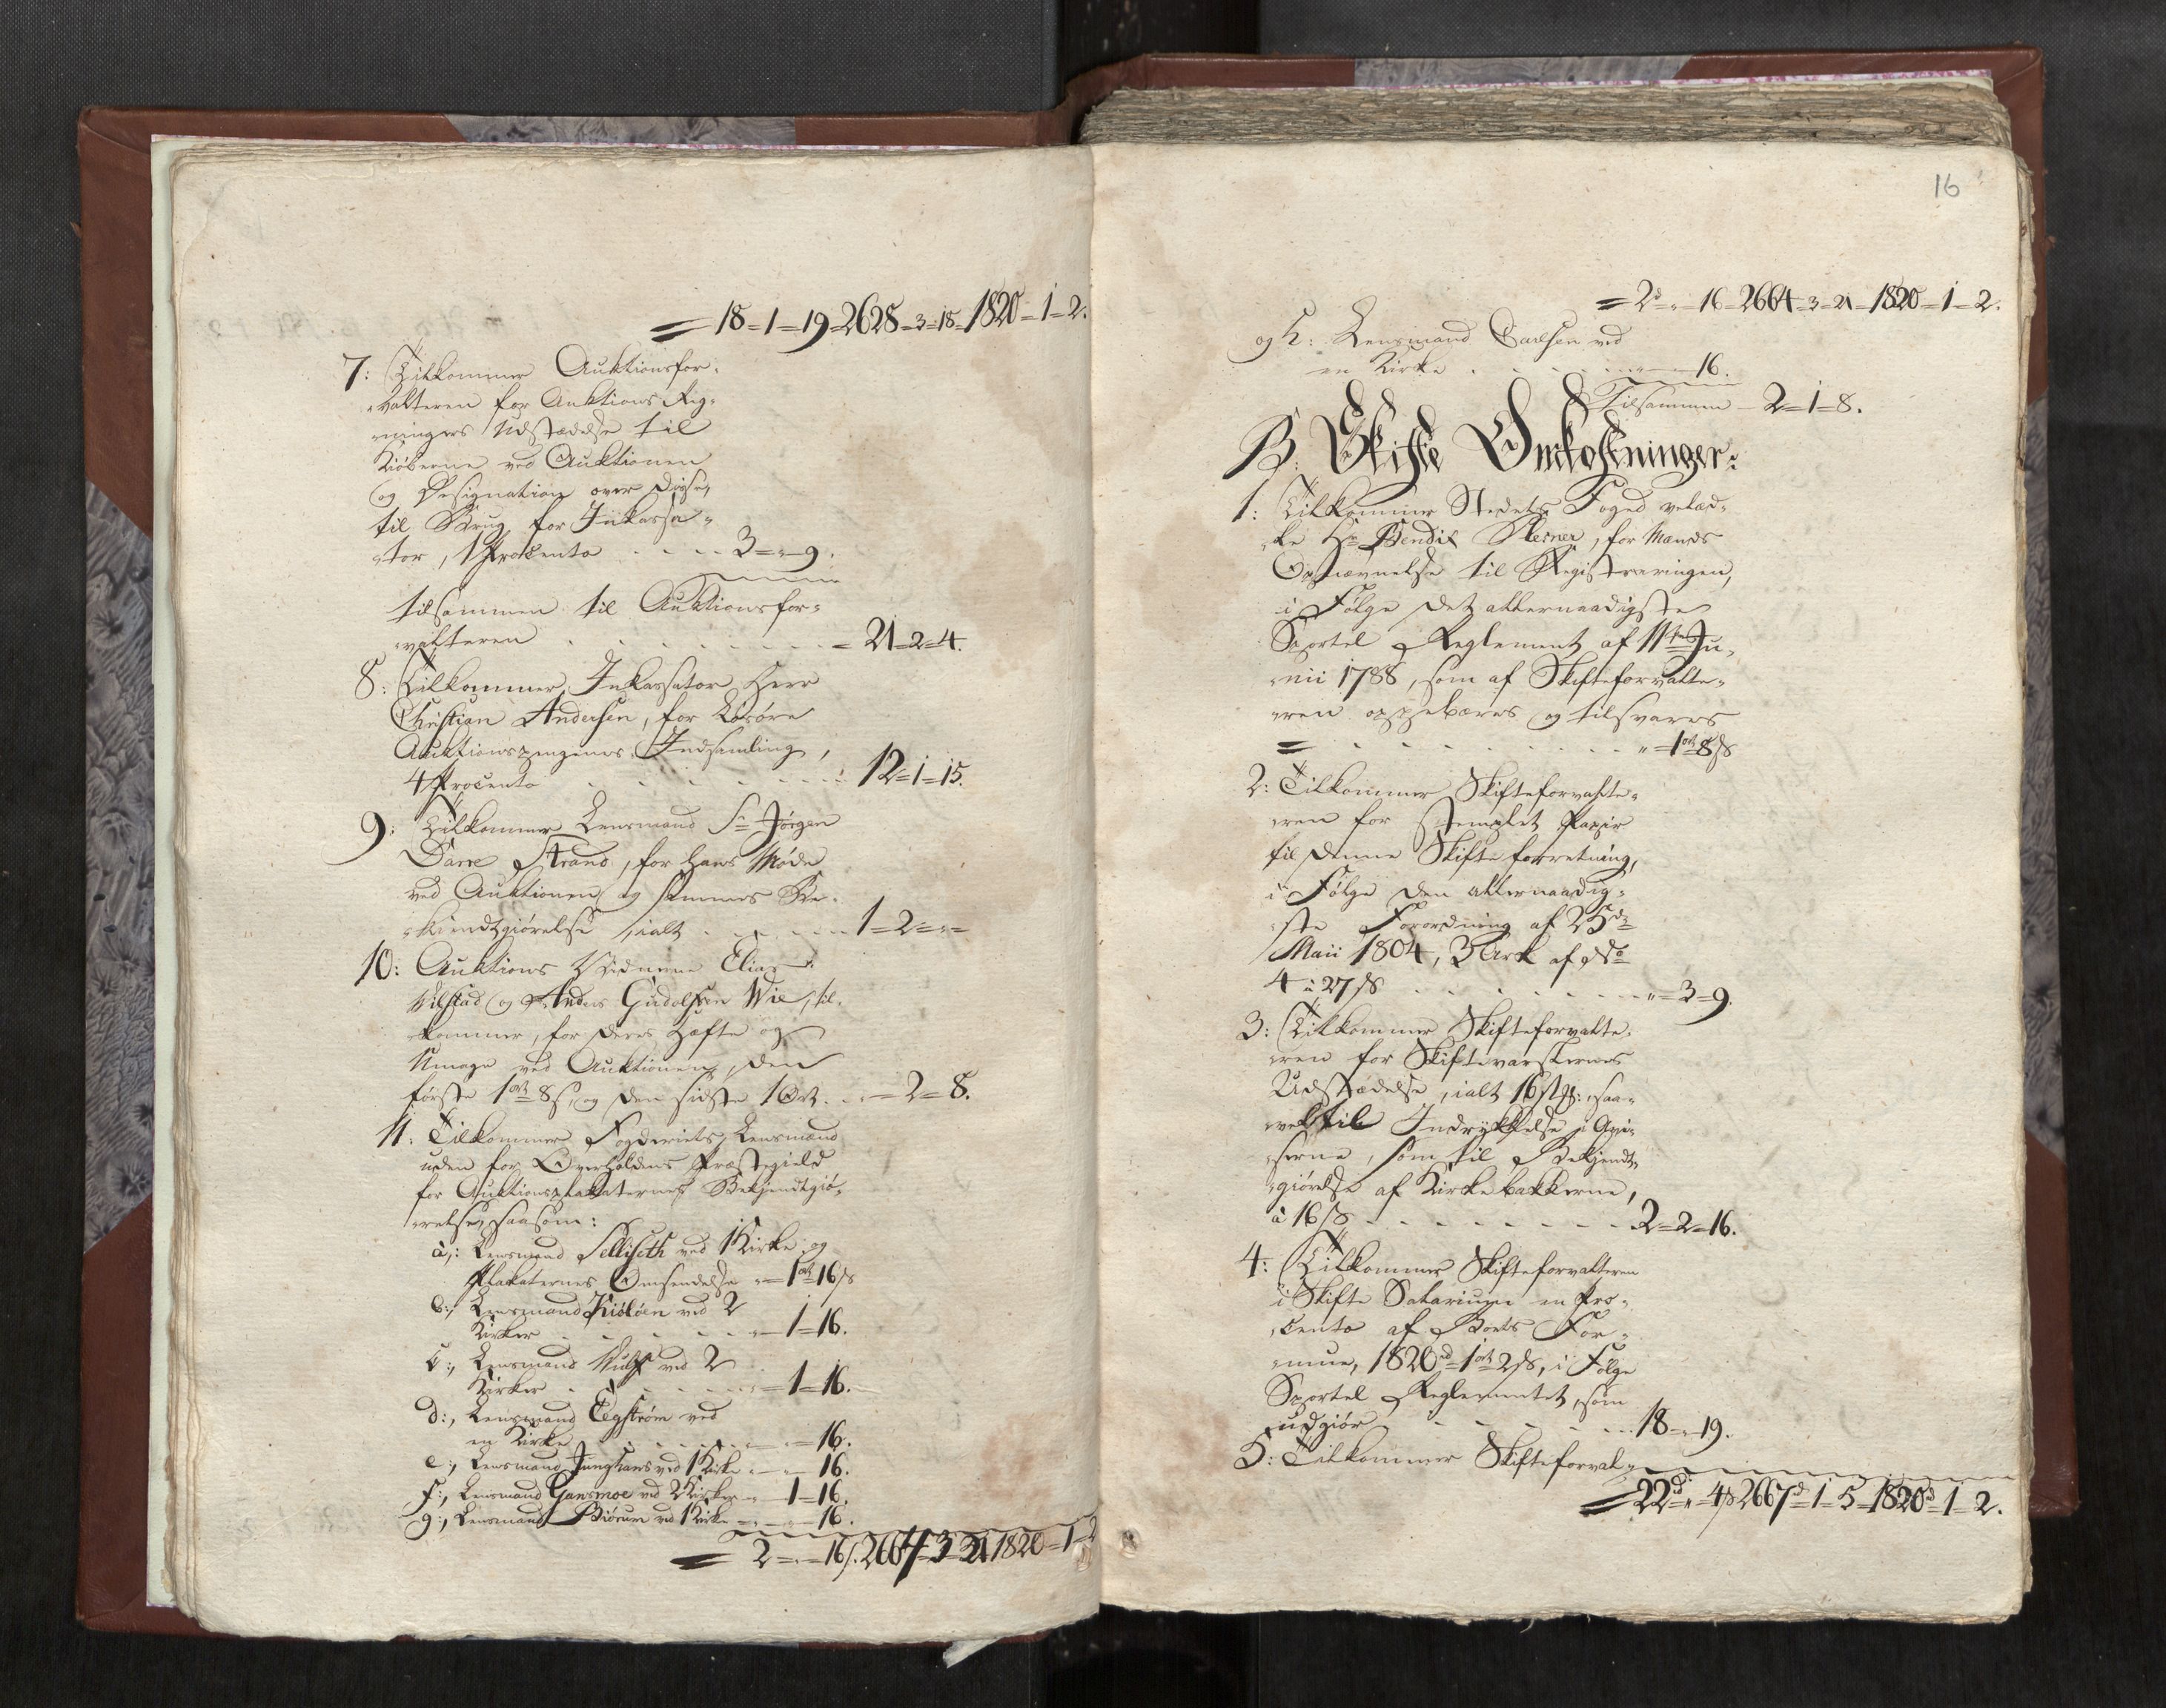 = 18 = 1 = 19 = 2628 = 3 = 18 = 1820 = 1 = 2.
7: Tilkommer Auktionsfor-
valteren for Auktions Reg-
ningers Udstædelse til
Kiöberne ved Auktionen
og Designation over disse,
til Brug for Inkassa-
tor, 1 Procento . . . . 3 = " = 9.
tilsammen til Auktionsfor-
valteren . . . . . . . . = 21 = 2 = 4.
8: Tilkommer Inkassator Herr
Christian Andersen, for Lösöre
Auktionspengenes Indsamling,
4 Procento . . . . . . . 12 = 1 = 15.
9: Tilkommer Lensmand Sr Jörgen
Darre Strand, for hans Möde
ved Auktionen og sammes Be-
kiendtgiörelse, ialt . . . . . . 1 = 2 = " =
10: Auktions Vidnerne Elias
Vilstad og Anders Gudolfsen Wie, til-
kommer, for deres Hæfte og
Umage ved Auktionen, den
förste 1 ort 8 s, og den sidste 1 Ort . . . = 2 = 8.
11: Tilkommer Fogderiets Lensmænd
uden for Overhaldens Præstegield
for Auktionsplakaternes Bekjendtgiö-
relse, saasom:
a,: Lensmand Sellisæth ved 1 Kirke og
Plakaternes Omsendelse " = 1 ort 16 s
b:, Lensmand Kiölöen ved 2
Kirker . . . . . " = 1 = 16.
c:, Lensmand Wulf ved 2
Kirker . . . . . " = 1 = 16.
d:, Lensmand Tegström ved
en Kirke . . . . . " = " = 16.
e:, Lensmand Junghans ved 1 Kirke " = " = 16.
f:, Lensmand Gansmoe ved 2 Kirker " = 1 = 16.
g:, Lensmand Biörum ved 1 Kirke " = " = 16.
= 2 = " = 16 s. 2664 = 3 = 21 1820 = 1 = 2
16
= 2 d = " = 16 = 2664 = 3 = 21 = 1820 = 1 = 2.
og h: Lensmand Carlsen ved
en Kirke . . . . . . " = " = 16.
Tilsammen = 2 = 1 = 8.
B: Skifte Omkostninger:
1: Tilkommer Stedets Foged velæd-
le Hr Bendix Pleener, for Mænds
Opnævnelse til Registreringen,
i Fölge det allernaadigste
Sportel Reglement af 11te Ju-
nii 1788, som af Skifteforvalte-
ren oppebæres og tilsvares
= . . . . . . . . . " = 1 ort 8 s
2: Tilkommer Skifteforvalte-
ren for stemplet Papir
til denne Skifte forretning,
i Fölge den allernaadig-
ste Forordning af 25de
Maii 1804, 3 Ark af No
4 à 27 s . . . . . . . . " = 3 = 9.
3: Tilkommer Skifteforvalte-
ren for Skiftevarslernes
Udstædelse, ialt 16 St:, saa-
vel til Indrykkelse i Avi-
serne, som til Bekjendt-
giörelse af Kirkebakkerne,
à 16 s . . . . . . . . 2 = 2 = 16.
4: Tilkommer Skifteforvalteren
i Skifte Salarium en Pro-
cento af Boets For-
mue, 1820 rd = 1 ort 2 s, i Fölge
Sportel Reglementet, som
udgiör . . . . . . . 18 = " = 19.
5: Tilkommer Skifteforval-
= 22 d = " = 4 s 2667 d = 1 = 5 = 1820 d = 1 = 2.